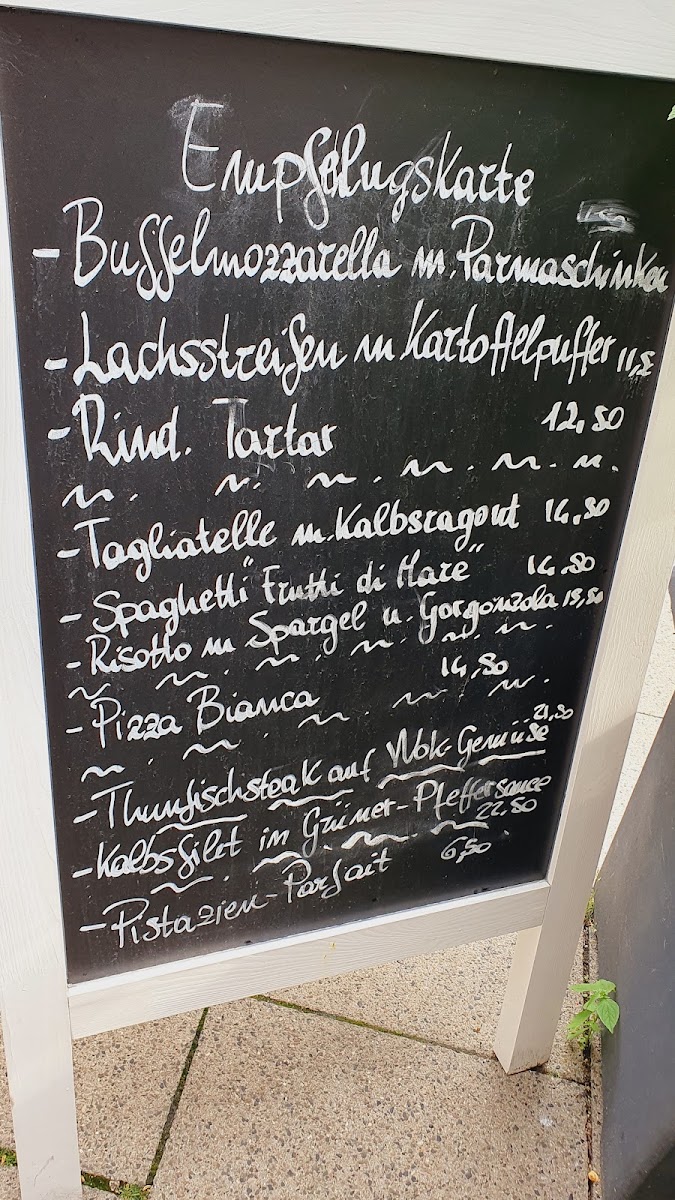 Empfehlugskarte
- Büffelmozzarella m. Parmaschinken
- Lachsstreifen m Kartoffelpuffer 11,5
- Rind. Tartar 12,50
- Tagliatelle m. Kalbsragout 14,80
- Spaghetti "Frutti di Mare" 14.80
- Risotto m Spargel u. Gorgonzola 13,50
- Pizza Bianca 14,80
21,50
- Thunfischsteak auf Wok-Gemüse
- Kalbsfilet in Grüner-Pfeffersauce
22,50
- Pistazien-Parfait 6,50